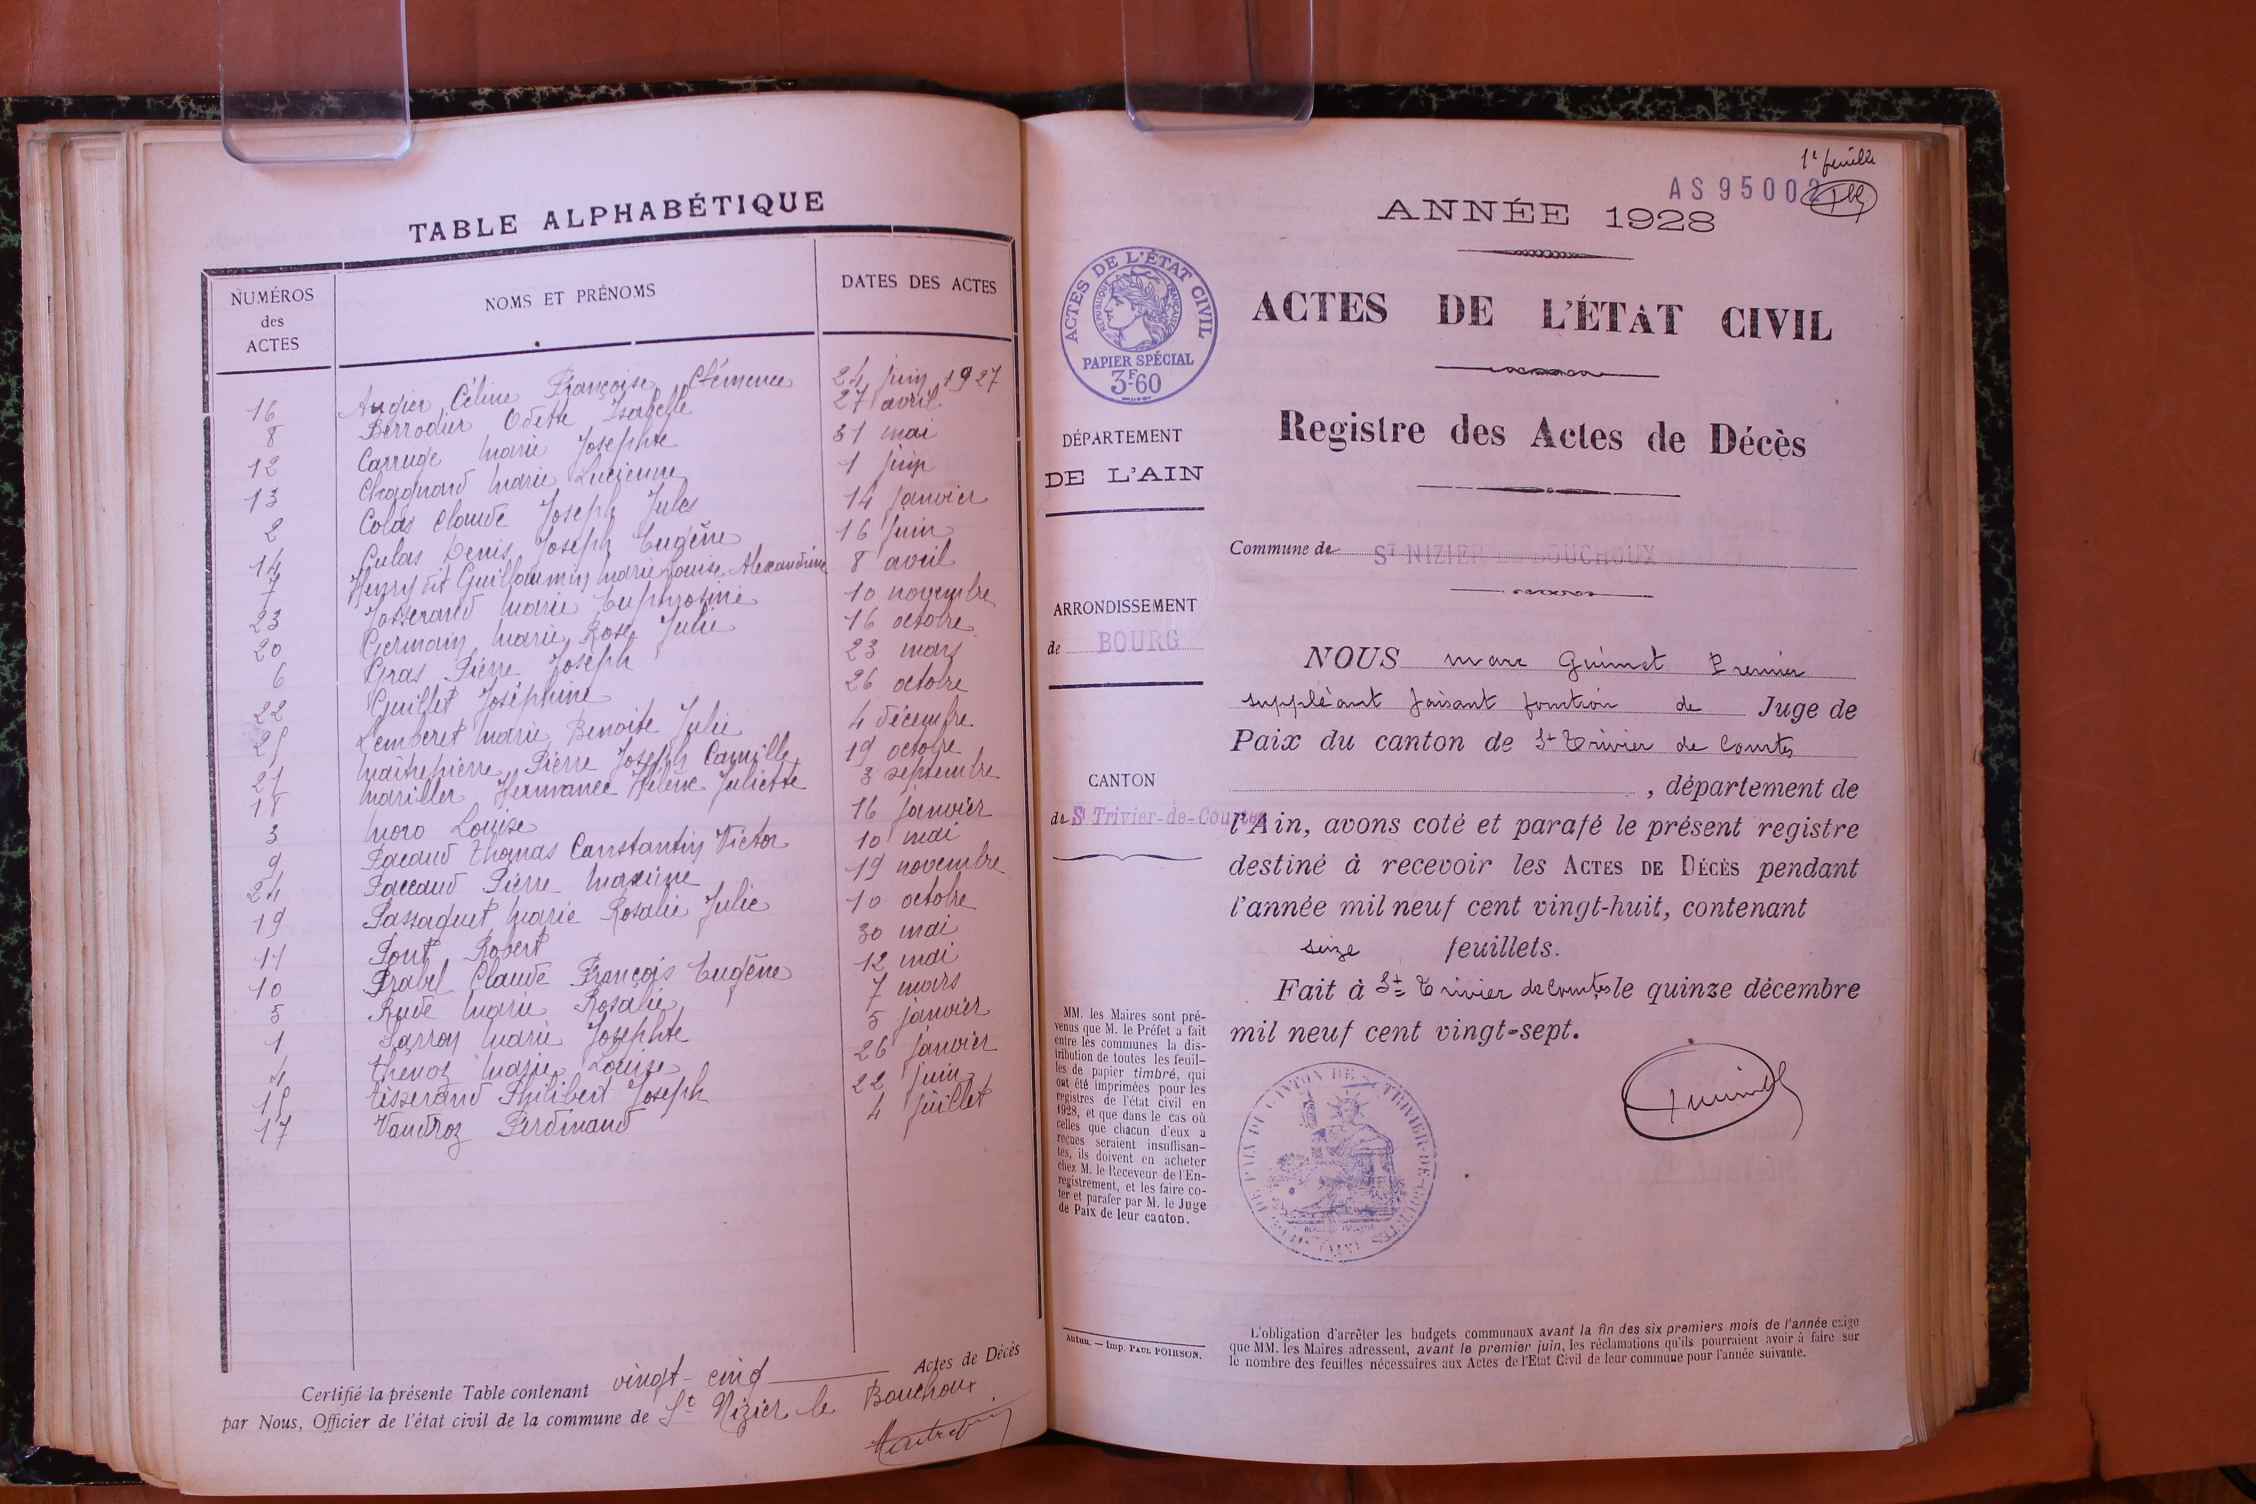 TABLE ALPHABÉTIQUE
NUMÉROS des ACTES NOMS ET PRÉNOMS DATES DES ACTES
16 Augier Céline Françoise Clémence 24 juin 1927
8 Berrodier Odette Isabelle 27 avril
12 Carruge Marie Josephte 31 mai
13 Chagnard Marie Lucienne 1 juin
2 Colas Claude Joseph Jules 14 janvier
14 Culas Denis Joseph Eugène 16 juin
7 Henry dit Guillaumin Marie Louise Alexandrine 8 avril
23 Josserand Marie Euphrosine 10 novembre
20 Germain Marie Rose Julie 16 octobre
6 Gras Pierre Joseph 23 mars
22 Guillet Joséphine 26 octobre
25 Lemberet Marie Benoite Julie 4 décembre
21 Maitrepierre Pierre Joseph Camille 19 octobre
18 Mariller Hermance Hélène Juliette 3 septembre
3 Moro Louise 16 janvier
9 Pacaud Thomas Constantin Victor 10 mai
24 Paccaud Pierre Maxime 19 novembre
19 Passaquet Marie Rosalie Julie 10 octobre
11 Pont Robert 30 mai
10 Prabel Claude François Eugène 12 mai
5 Rude Marie Rosalie 7 mars
1 Sarron Marie Josephte 5 janvier
4 Thenoz Marie Louise 26 janvier
15 Tisserand Philibert Joseph 22 juin
17 Vaudroz Ferdinand 4 juillet
Certifié la présente Table contenant vingt-cinq Actes de Décès
par Nous, Officier de l'état civil de la commune de St Nizier le Bouchoux
1e feuille
AS 95002
ANNÉE 1928
ACTES DE L'ÉTAT CIVIL
RÉPUBLIQUE FRANÇAISE
PAPIER SPÉCIAL
3F60
ACTES DE L'ÉTAT CIVIL
Registre des Actes de Décès
DÉPARTEMENT
DE L'AIN
Commune de ST NIZIER LE BOUCHOUX
ARRONDISSEMENT
de BOURG
CANTON
de St Trivier-de-Courtes
NOUS Marc Guimet Premier
suppléant faisant fonction de Juge de
Paix du canton de St Trivier de Courtes
, département de
l'Ain, avons coté et parafé le présent registre
destiné à recevoir les ACTES DE DÉCÈS pendant
l'année mil neuf cent vingt-huit, contenant
seize feuillets.
Fait à St Trivier de Courtes le quinze décembre
mil neuf cent vingt-sept.
MM. les Maires sont pré-
venus que M. le Préfet a fait
entre les communes la dis-
tribution de toutes les feuil-
les de papier timbré, qui
ont été imprimées pour les
registres de l'état civil en
1928, et que dans le cas où
celles que chacun d'eux a
reçues seraient insuffisan-
tes, ils doivent en acheter
chez M. le Receveur de l'En-
registrement, et les faire co-
ter et parafer par M. le Juge
de Paix de leur canton.
Autun. — Imp. PAUL POIRSON.
L'obligation d'arrêter les budgets communaux avant la fin des six premiers mois de l'année exige
que MM. les Maires adressent, avant le premier juin, les réclamations qu'ils pourraient avoir à faire sur
le nombre des feuilles nécessaires aux Actes de l'Etat Civil de leur commune pour l'année suivante.